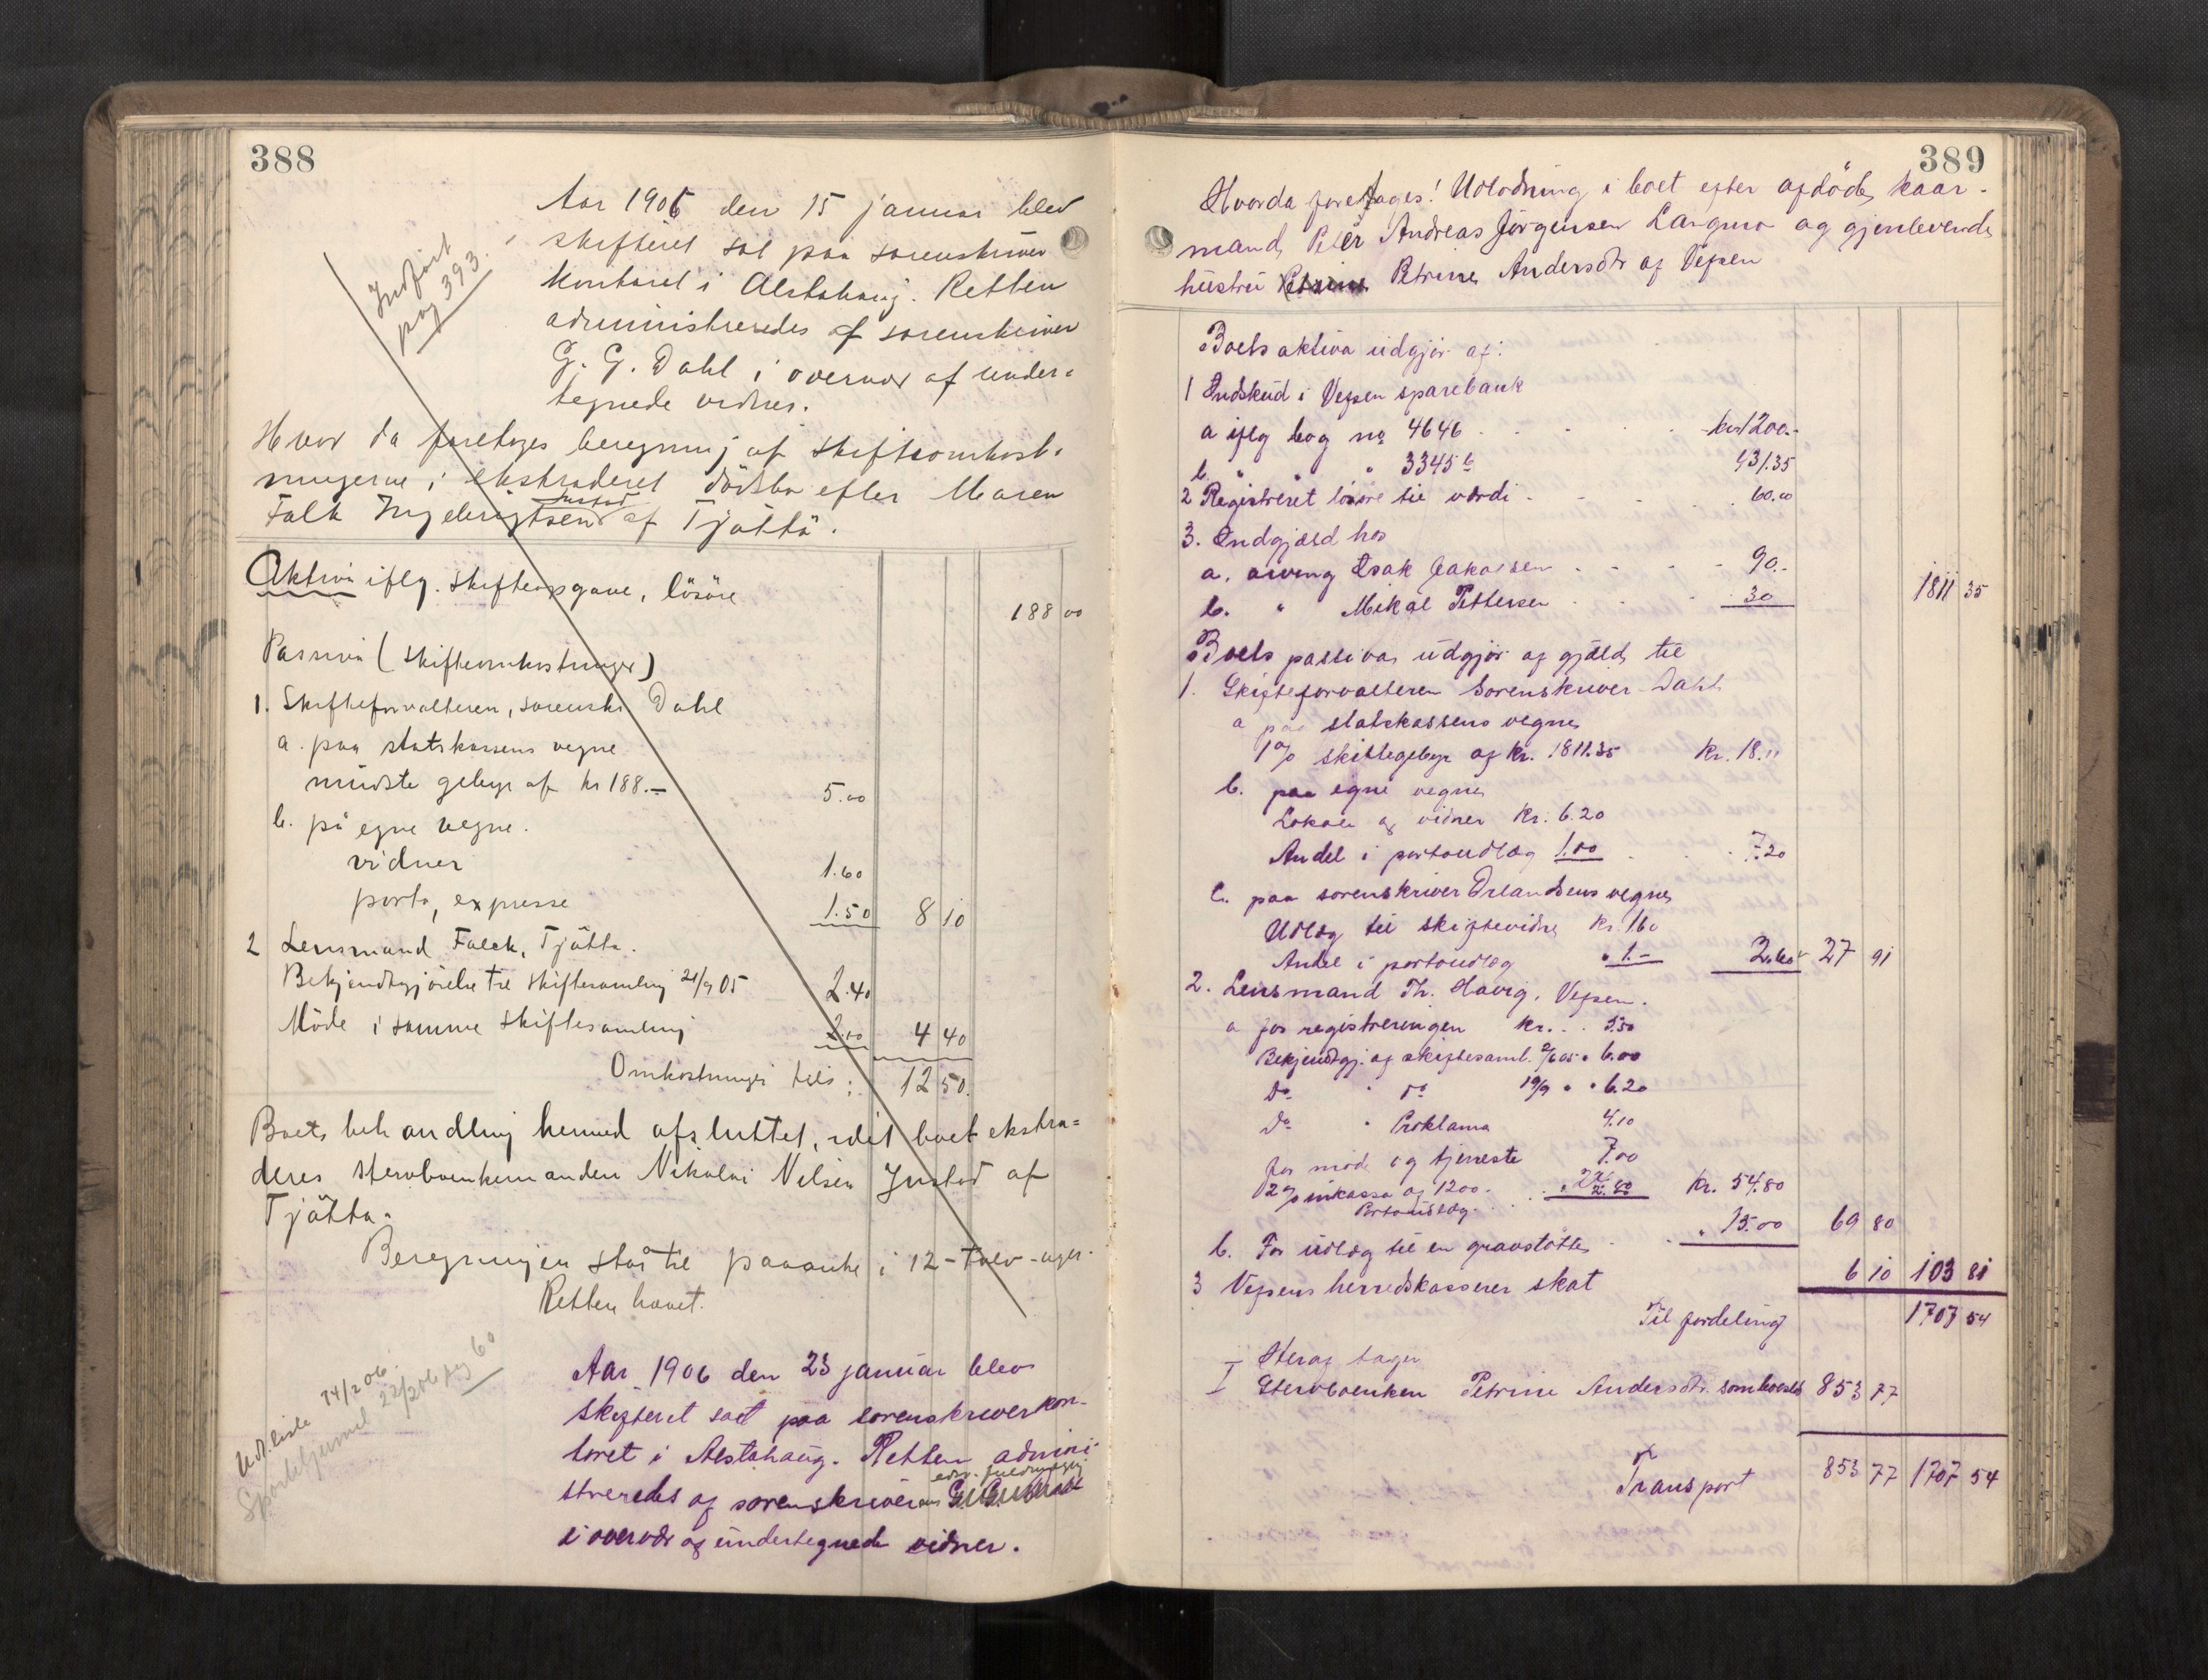 388
Indført
pag 393.
Aar 1906 den 15 januar blev
skifteret sat paa sorenskriver
kontoret i Alstahaug. Retten
administreredes af sorenskriver
G. G. Dahl i overvær af under-
tegnede vidner.
Hvor da foretoges beregning af skifteomkost-
ningerne i ekstraderet dödsbo efter Maren
Justad
Falk Ingebrigtsen af Tjöttö.
Aktiva iflg. skifteopgave, lösöre 188 00
Passiva (skifteomkostninger)
1. Skifteforvalteren, sorenskr Dahl
a. paa statskassens vegne
mindste gebyr af kr 188.– 5.00
b. på egne vegne.
vidner 1.60
porto, expresse 1.50 8 10
2 Lensmand Falck, Tjötta.
Bekjendtgjörelse til skiftesamling 21/9 05 2.40
Möde i samme skiftesamling 2.00 4 40
Omkostninger tils: 12 50.
Boets behandling hermed afsluttet, idet boet ekstra=
deres sterboenkemanden Nikolai Nilsen Justad af
Tjötta.
Beregningen står til paaanke i 12 - tolv - uger.
Retten hævet.
Udl. liste 14/2 06.
22/2 06 pag 60
Aar 1906 den 23 januar blev
skifteret sat paa sorenskriverkon-
toret i Alstahaug. Retten admini-
edsv. fuldmægtig
streredes af sorenskriver
i overvær af undertegnede vidner.
389
Hvorda foretages! Udlodning i boet efter afdöde kaar-
mand Peter Andreas Jörgensen Langmo og gjenlevende
hustru Petrine Andersdtr af Vefsen
Boets aktiva udgjör af:
1 Indskud i Vefsen sparebank
a iflg bog no 4646 kr 1200.-
b. " " " 3345 b 431.35
2 Registreret lösöre til værdi 60.00
3. Indgjæld hos
a. arving Isak Jakobsen 90.-
b. " Mikal Pettersen 30 1811 35
Boets passiva udgjör af gjæld til
1. Skifteforvalteren Sorenskriver Dahl
a paa statskassens vegne
1 % skiftegebyr af kr. 1811.35 Kr. 18.11
b. paa egne vegne
Lokale og vidner Kr. 6.20
Andel i portoudlæg 1.00 7.20
c. paa sorenskriver Erlandsens vegne
Udlæg til skiftevidne Kr. 1.60
Andel i portoudlæg " 1.- 2.60 27 91
2. Lensmand Th. Havig, Vefsen.
a for registreringen Kr. 5.50
Bekjendtgj. af skiftesaml. 2/6 05 " 6.00
Do " Do 19/9 " " 6.20
Do " Proklama 4.10
for möde og tjeneste 7.00
2 % inkasso af 1200.-
Portoudlæg Kr. 54.80
b. For udlæg til en gravstötte " 15.00 69 80
3 Vefsens herredskasserer skat 6 10 103 81
Til fordeling 1707 54
Heraf tager
I Sterboenken Petrine Andersdtr. som boeslod 853 77
Transport 853 77 1707 54